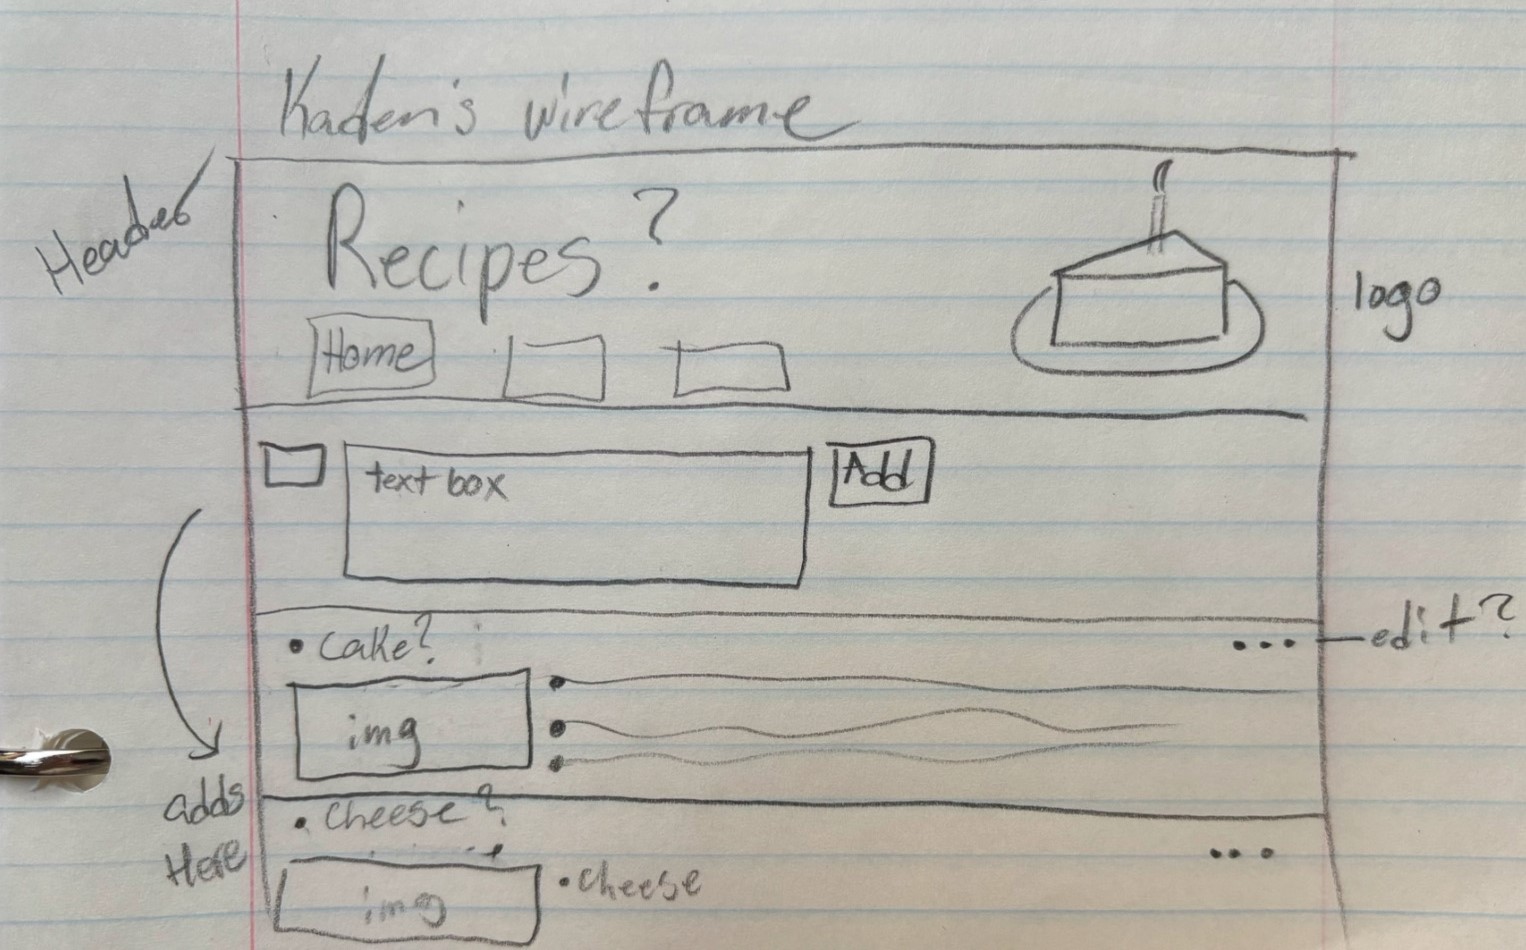 Kaden's wireframe
Header
Recipes?
logo
Home
text box
Add
• cake?
... edit?
img
adds
Here
• cheese?
...
img
• cheese